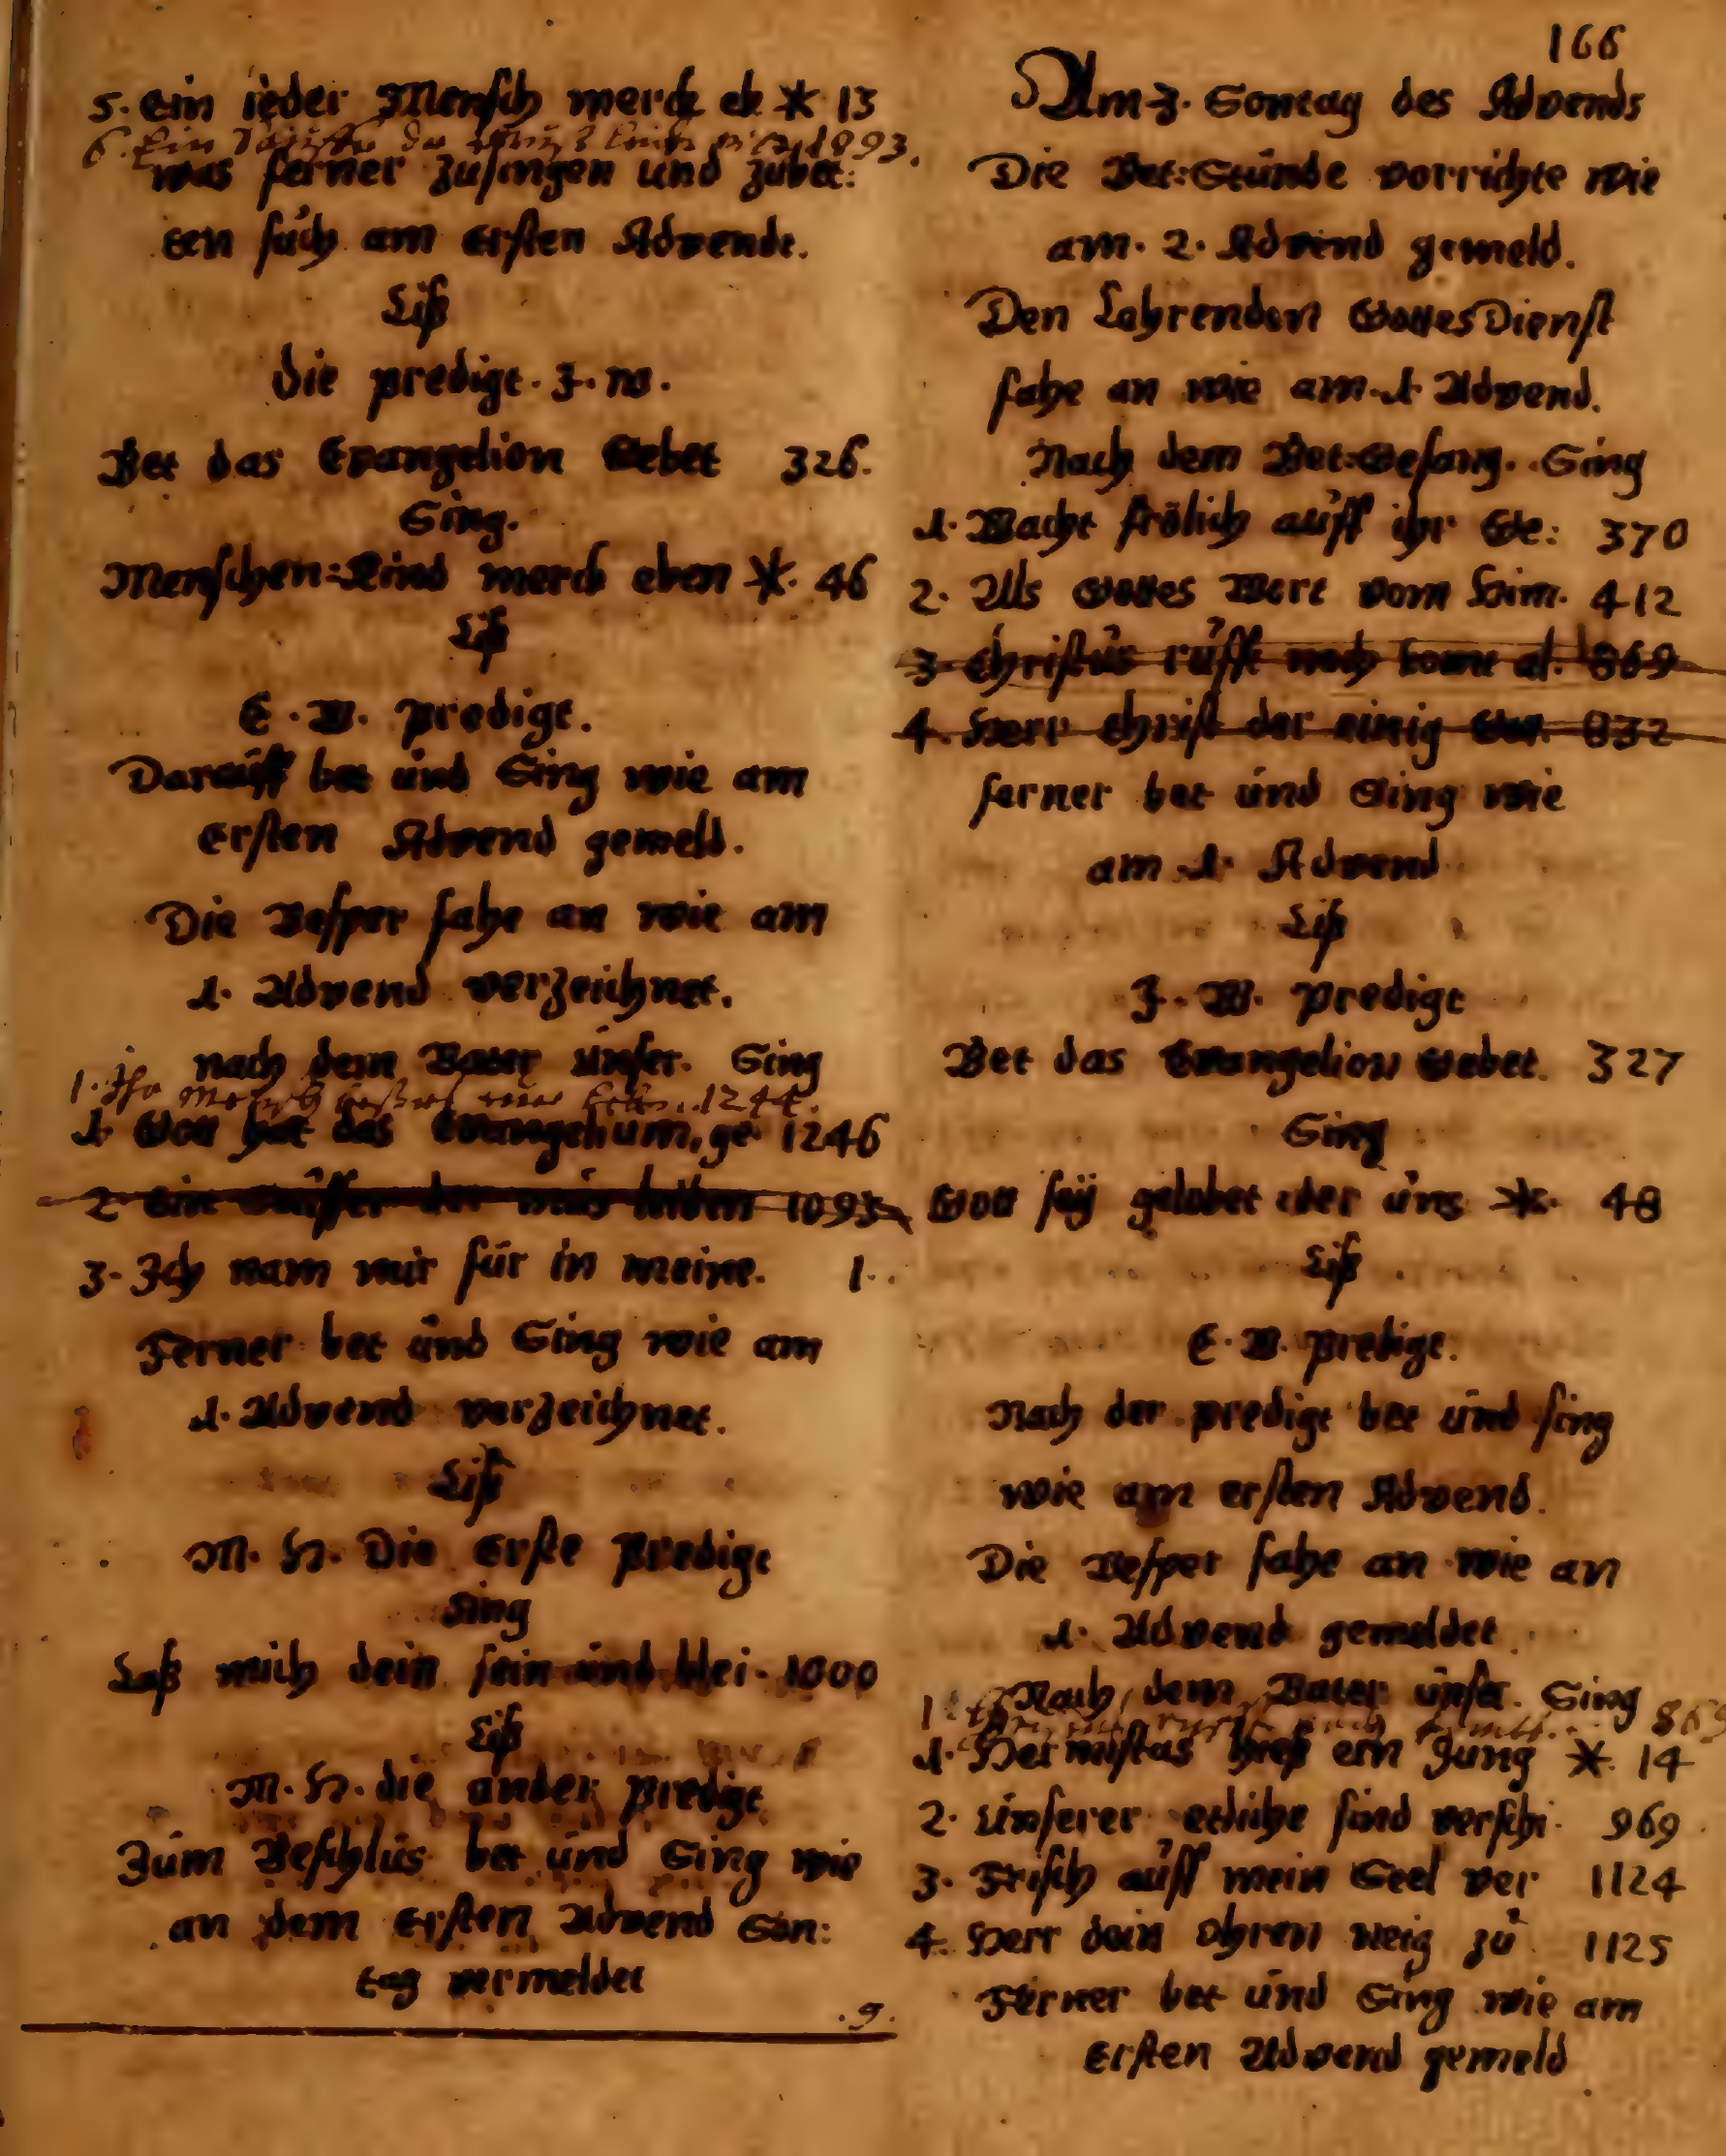 5. Ein ieder Mensch merck eb ✳ 13
6. Ein 1893.
was ferner zusingen und zubet:
ten such am ersten Advendt.
Liß
die predigt. J. W.
Bet das Evangelion Gebet 326.
Sing.
Menschen=Kind merck eben ✳. 46
Liß
E. W. predigt.
Darauff bet und Sing wie am
Ersten Advend gemeld.
Die Vesper fahe an wie am
1. Advend verzeichnet.
nach dem Vater unser. Sing
1. 1244.
1. Gott hat das Evangelium, ge 1246
2 Ein Tauffer der mus leiben 1093
3. Ich nam mir für in meine. 1.
Ferner bet und Sing wie am
1. Advend verzeichnet.
Liß
M. H. Die Erste Predigt
Sing
Laß mich dein sein und blei. 1000
Liß
M. H. die ander predigt
Züm Beschlüs bet und Sing wie
an dem Ersten Advend Son:
tag vermeldet
.9.
166
Am 3. Sontag des Advends
Die Bet=Stünde vorrichte wie
am. 2. Advend gemeld.
Den Lehrenden GottesDienst
fahe an wie am. 1. Advend.
Nach dem Bet=Gesang. Sing
1. Wacht frölich auff ihr Ge: 370
2. Als Gottes Wort vom Him. 412
3 Christus rufft noch komt al. 869
4. Herr Christ der einig Got. 832
ferner bet und Sing wie
am 1. Advend
Liß
J. W. predigt
Bet das Evangelion Gebet. 327
Sing
Gott sey gelobet der uns ✳. 48
Liß
E. W. predigt.
Nach der predigt bet und sing
wie am ersten Advend.
Die Vesper fahe an wie an
1. Advend gemeldet
Nach dem Vater unser. Sing
1 869
1. Hermistas hieß ein Jung ✳. 14
2. Unserer etliche sind verschi. 969.
3. Frisch auff mein Seel ver 1124
4. Herr dein Ohren neig zu 1125
Ferner bet und Sing wie am
Ersten Advend gemeld